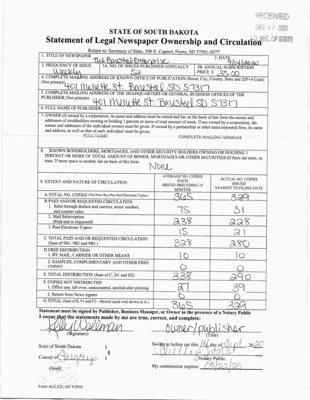 RECEIVED
DEC 07 2020
SEC OF STATE
STATE OF SOUTH DAKOTA
Statement of Legal Newspaper Ownership and Circulation
Return to: Secretary of State, 500 E. Capitol, Pierre, SD 57501-5077
1. TITLE OF NEWSPAPER
The Bonesteel Enterprise
2. DATE
3. FREQUENCY OF ISSUE
Weekly
3A. NO. OF ISSUES PUBLISHED ANNUALLY
52
3B. ANNUAL SUBSCRIPTION
PRICE $ 35.00
4. COMPLETE MAILING ADDRESS OF KNOWN OFFICE OF PUBLICATION (Street, City, County, State and ZIP+4 Code)
(Not printers)
401 Mellette St. Bonesteel SD 57317
5. COMPLETE MAILING ADDRESS OF THE HEADQUARTERS OR GENERAL BUSINESS OFFICES OF THE
PUBLISHER (Not printer)
401 Mellette St. Bonesteel SD 57317
6. FULL NAME OF PUBLISHER:
7. OWNER (If owned by a corporation, its name and address must be stated and also on the back of this form the names and
addresses of stockholders owning or holding 1 percent or more of total amount of stock. If not owned by a corporation, the
names and addresses of the individual owners must be given. If owned by a partnership or other unincorporated firm, its name
and address, as well as that of each individual must be given.
FULL NAME
COMPLETE MAILING ADDRESS
8. KNOWN BONDHOLDERS, MORTGAGES, AND OTHER SECURITY HOLDERS OWNING OR HOLDING 1
PERCENT OR MORE OF TOTAL AMOUNT OF BONDS, MORTGAGES OR OTHER SECURITIES (If there are none, so
state. If more space is needed, list on back of this form.
None
9. EXTENT AND NATURE OF CIRCULATION
AVERAGE NO. COPIES EACH ISSUED PRECEDING 12 MONTHS
ACTUAL NO. COPIES ISSUED NEAREST TO FILING DATE
A. TOTAL NO. COPIES
365 329
B. PAID AND/OR REQUESTED CIRCULATION
1. Sales through dealers and carriers, street vendors,
and counter sales.
75 31
2. Mail Subscription
(Paid and/or requested)
238 228
3. Paid Electronic Copies
15 21
C. TOTAL PAID AND/OR REQUESTED CIRCULATION
(Sum of 9B1, 9B2 and 9B3.)
328 280
D. FREE DISTRIBUTION
1. BY MAIL, CARRIER OR OTHER MEANS
10 10
2. SAMPLES, COMPLIMENTARY AND OTHER FREE
COPIES
0 0
E. TOTAL DISTRIBUTION (Sum of C, D1 and D2)
338 290
F. COPIES NOT DISTRIBUTED
1. Office use, left over, unaccounted, spoiled after printing
27 39
2. Return from News Agents
0 0
G. TOTAL (Sum of E, F1 and F2 - Should equal total shown in A.)
365 329
Statement must be signed by Publisher, Business Manager, or Owner in the presence of a Notary Public
I swear that the statements made by me are true, correct, and complete:
Kelly Wallman
owner/publisher
(Signature)
(Title)
State of South Dakota
Sworn to before me this 14 day of Sept, 2020
County of Gregory
Notary Public
(Seal)
My commission expires: